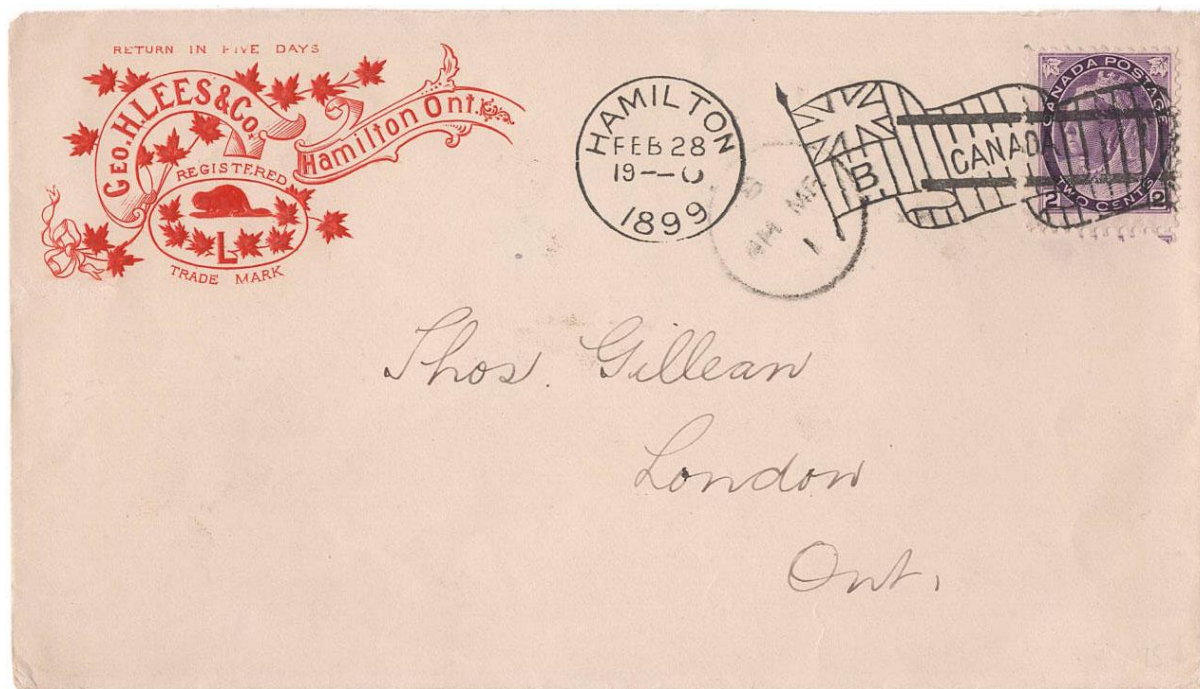 RETURN IN FIVE DAYS
GEO. H. LEES & Co.
Hamilton Ont.
REGISTERED
L
TRADE MARK
HAMILTON
FEB 28
19—0
1899
B
CANADA
CANADA POSTAGE
2 TWO CENTS 2
AM
1
Thos. Gillean
London
Ont.